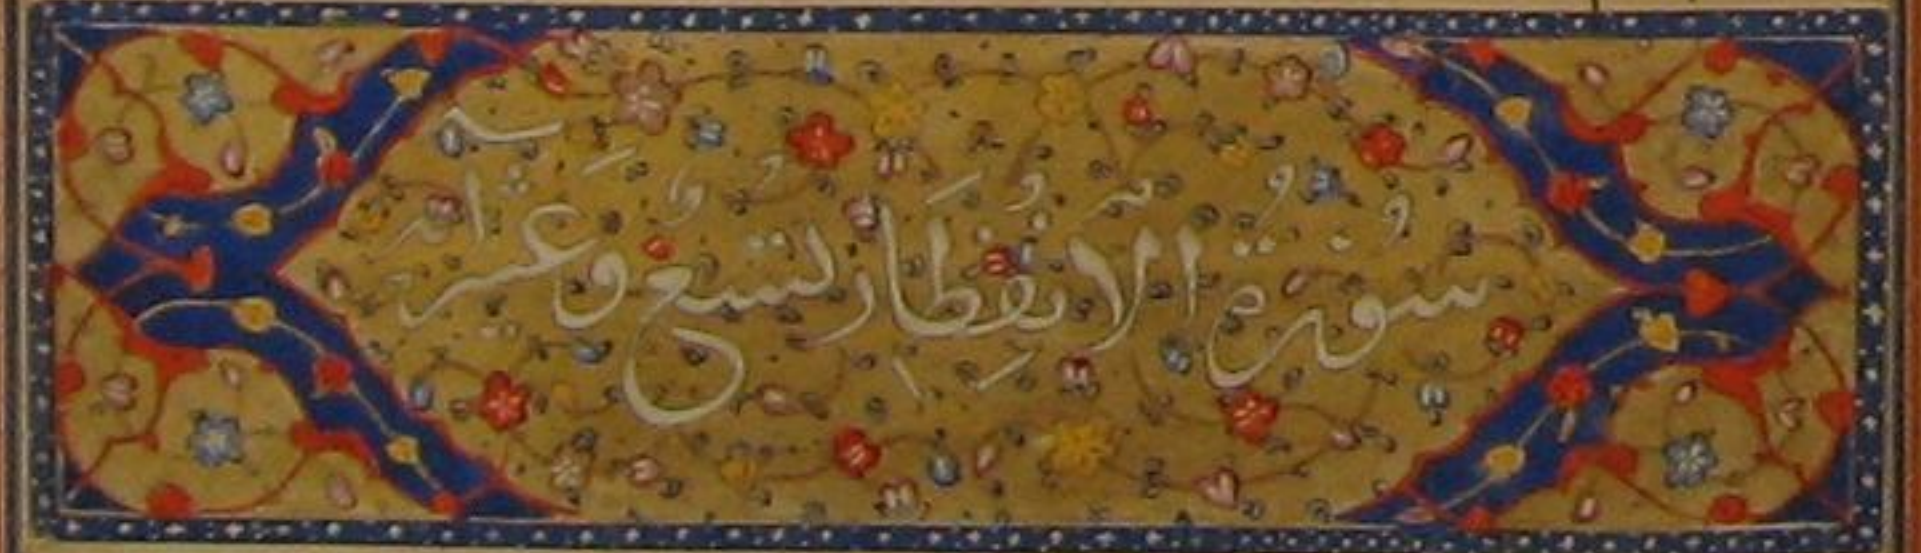 سُورَةُ الاِنفِطَار لتسعٌ وَعشر اية